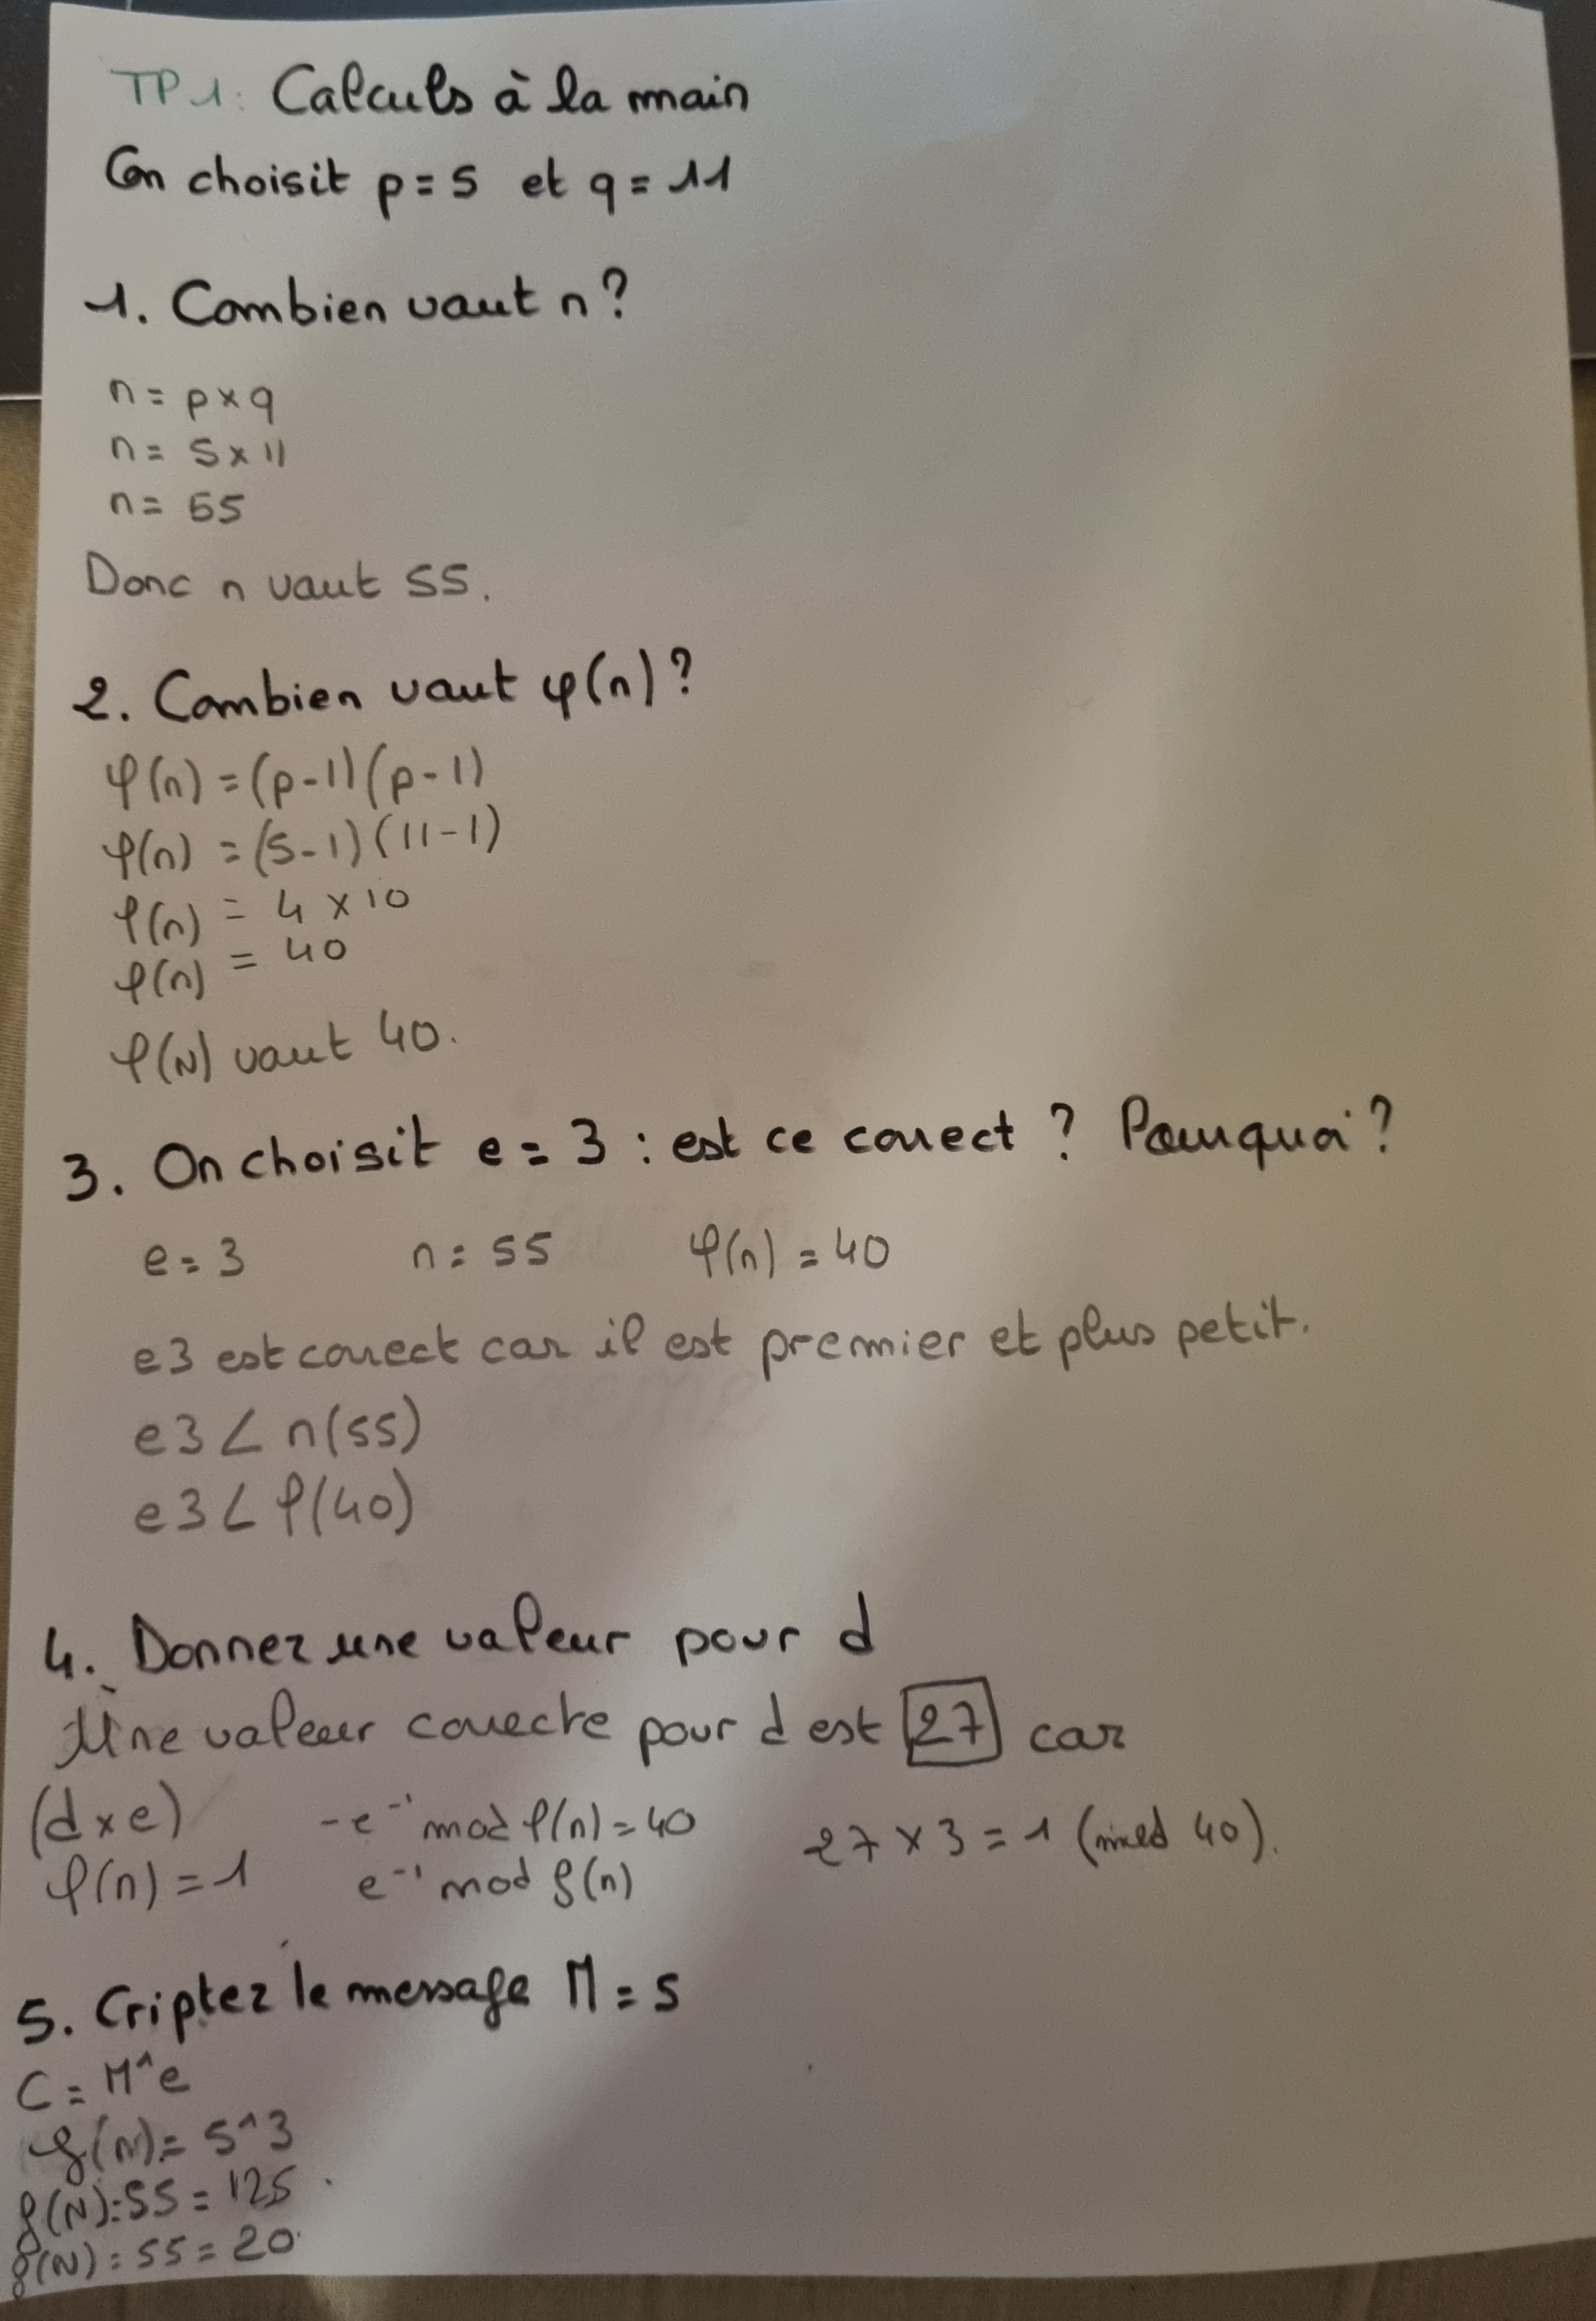 TP1: Calculs à la main
On choisit p = 5 et q = 11
1. Combien vaut n ?
n = p x q
n = 5 x 11
n = 55
Donc n vaut 55.
2. Combien vaut φ(n) ?
φ(n) = (p-1)(p-1)
φ(n) = (5-1)(11-1)
φ(n) = 4 x 10
φ(n) = 40
φ(N) vaut 40.
3. On choisit e = 3 : est ce correct ? Pourquoi ?
e = 3 n = 55 φ(n) = 40
e3 est correct car il est premier et plus petit.
e3 < n(55)
e3 < φ(40)
4. Donnez une valeur pour d
Une valeur correcte pour d est 27 car
(d x e) -e⁻¹ mod φ(n) = 40 27 x 3 = 1 (mod 40).
φ(n) = 1 e⁻¹ mod φ(n)
5. Criptez le message M = 5
C = M^e
φ(N) = 5^3
φ(N) = 55 = 125
φ(N) = 55 = 20